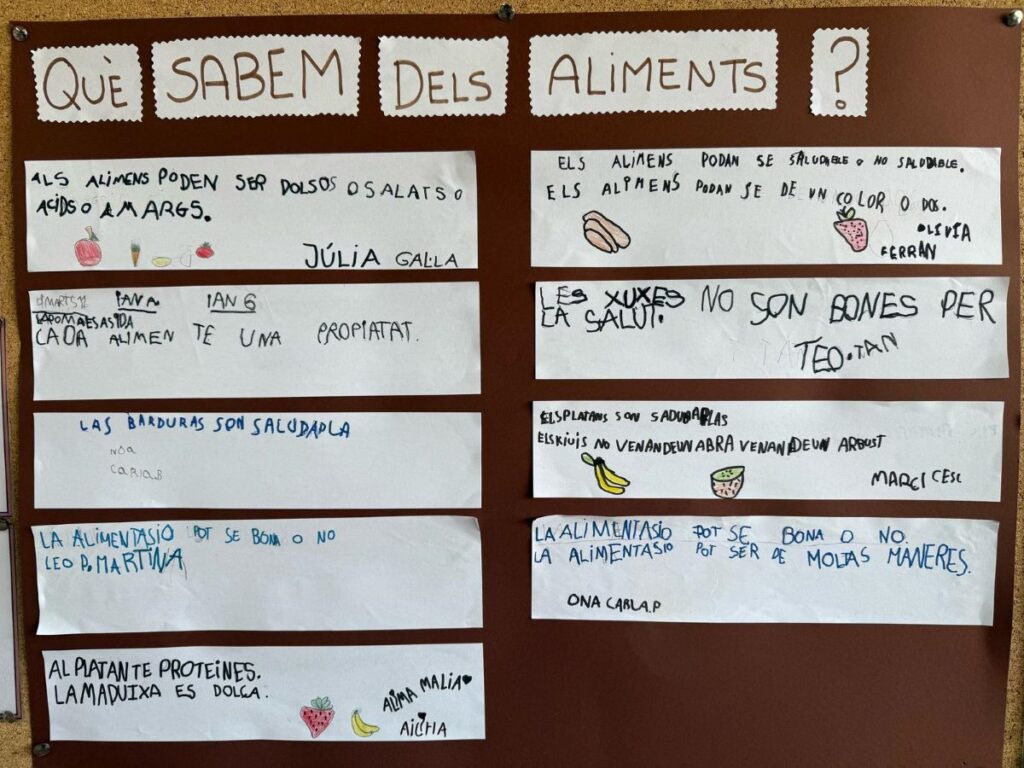 QUÈ SABEM DELS ALIMENTS ?
ALS ALIMENS PODEN SER DOLSOS O SALATS O
ACIDS O AMARGS.
JÚLIA GALLA
IAN A IAN G
LAPOMA ES ASIDA
CADA ALIMEN TE UNA PROPIATAT.
LAS BARDURAS SON SALUDAPLA
NOA
CARLA B
LA ALIMENTASIO POT SE BONA O NO
LEO P. MARTINA
AL PLATAN TE PROTEINES.
LA MADUIXA ES DOLÇA.
ALIMA MALIA
ELS ALIMENS PODAN SE SALUDABLE O NO SALUDABLE.
ELS ALIMENS PODAN SE DE UN COLOR O DOS.
OLIVIA
FERRAN
LES XUXES NO SON BONES PER
LA SALUT.
TEO. TAN
ELS PLATANS SON
ELS KIUIS NO VENAN DE UN ABRA VENAN DE UN ARBUST
MARC I CESC
LA ALIMENTASIO POT SE BONA O NO.
LA ALIMENTASIO POT SER DE MOLTAS MANERES.
ONA CARLA.P